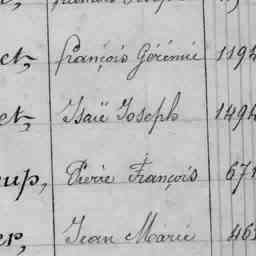 ct, François Gérémie 1194
ct, Isaïe Joseph 1494
oup, Pierre François 671
er, Jean Marie 463